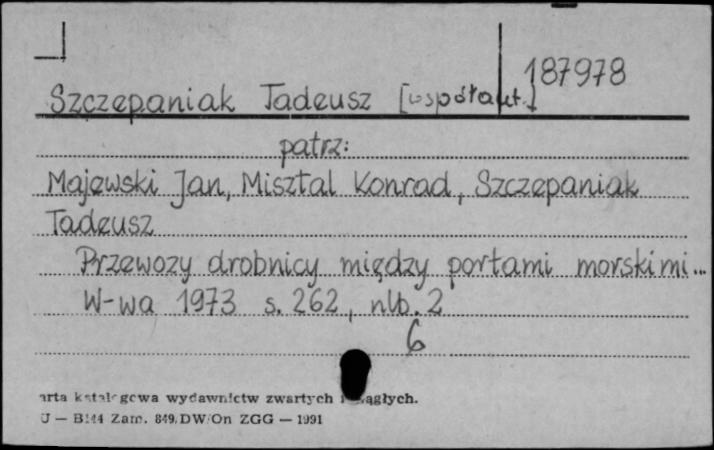 187978
Szczepaniak Tadeusz [współaut.]
patrz:
Majewski Jan, Misztal Konrad, Szczepaniak
Tadeusz
Przewozy drobnicy między portami morskimi...
W-wa 1973 s. 262, nlb. 2
6
arta katalogowa wydawnictw zwartych i ciągłych.
U — B144 Zam. 849/DW/On ZGG — 1991